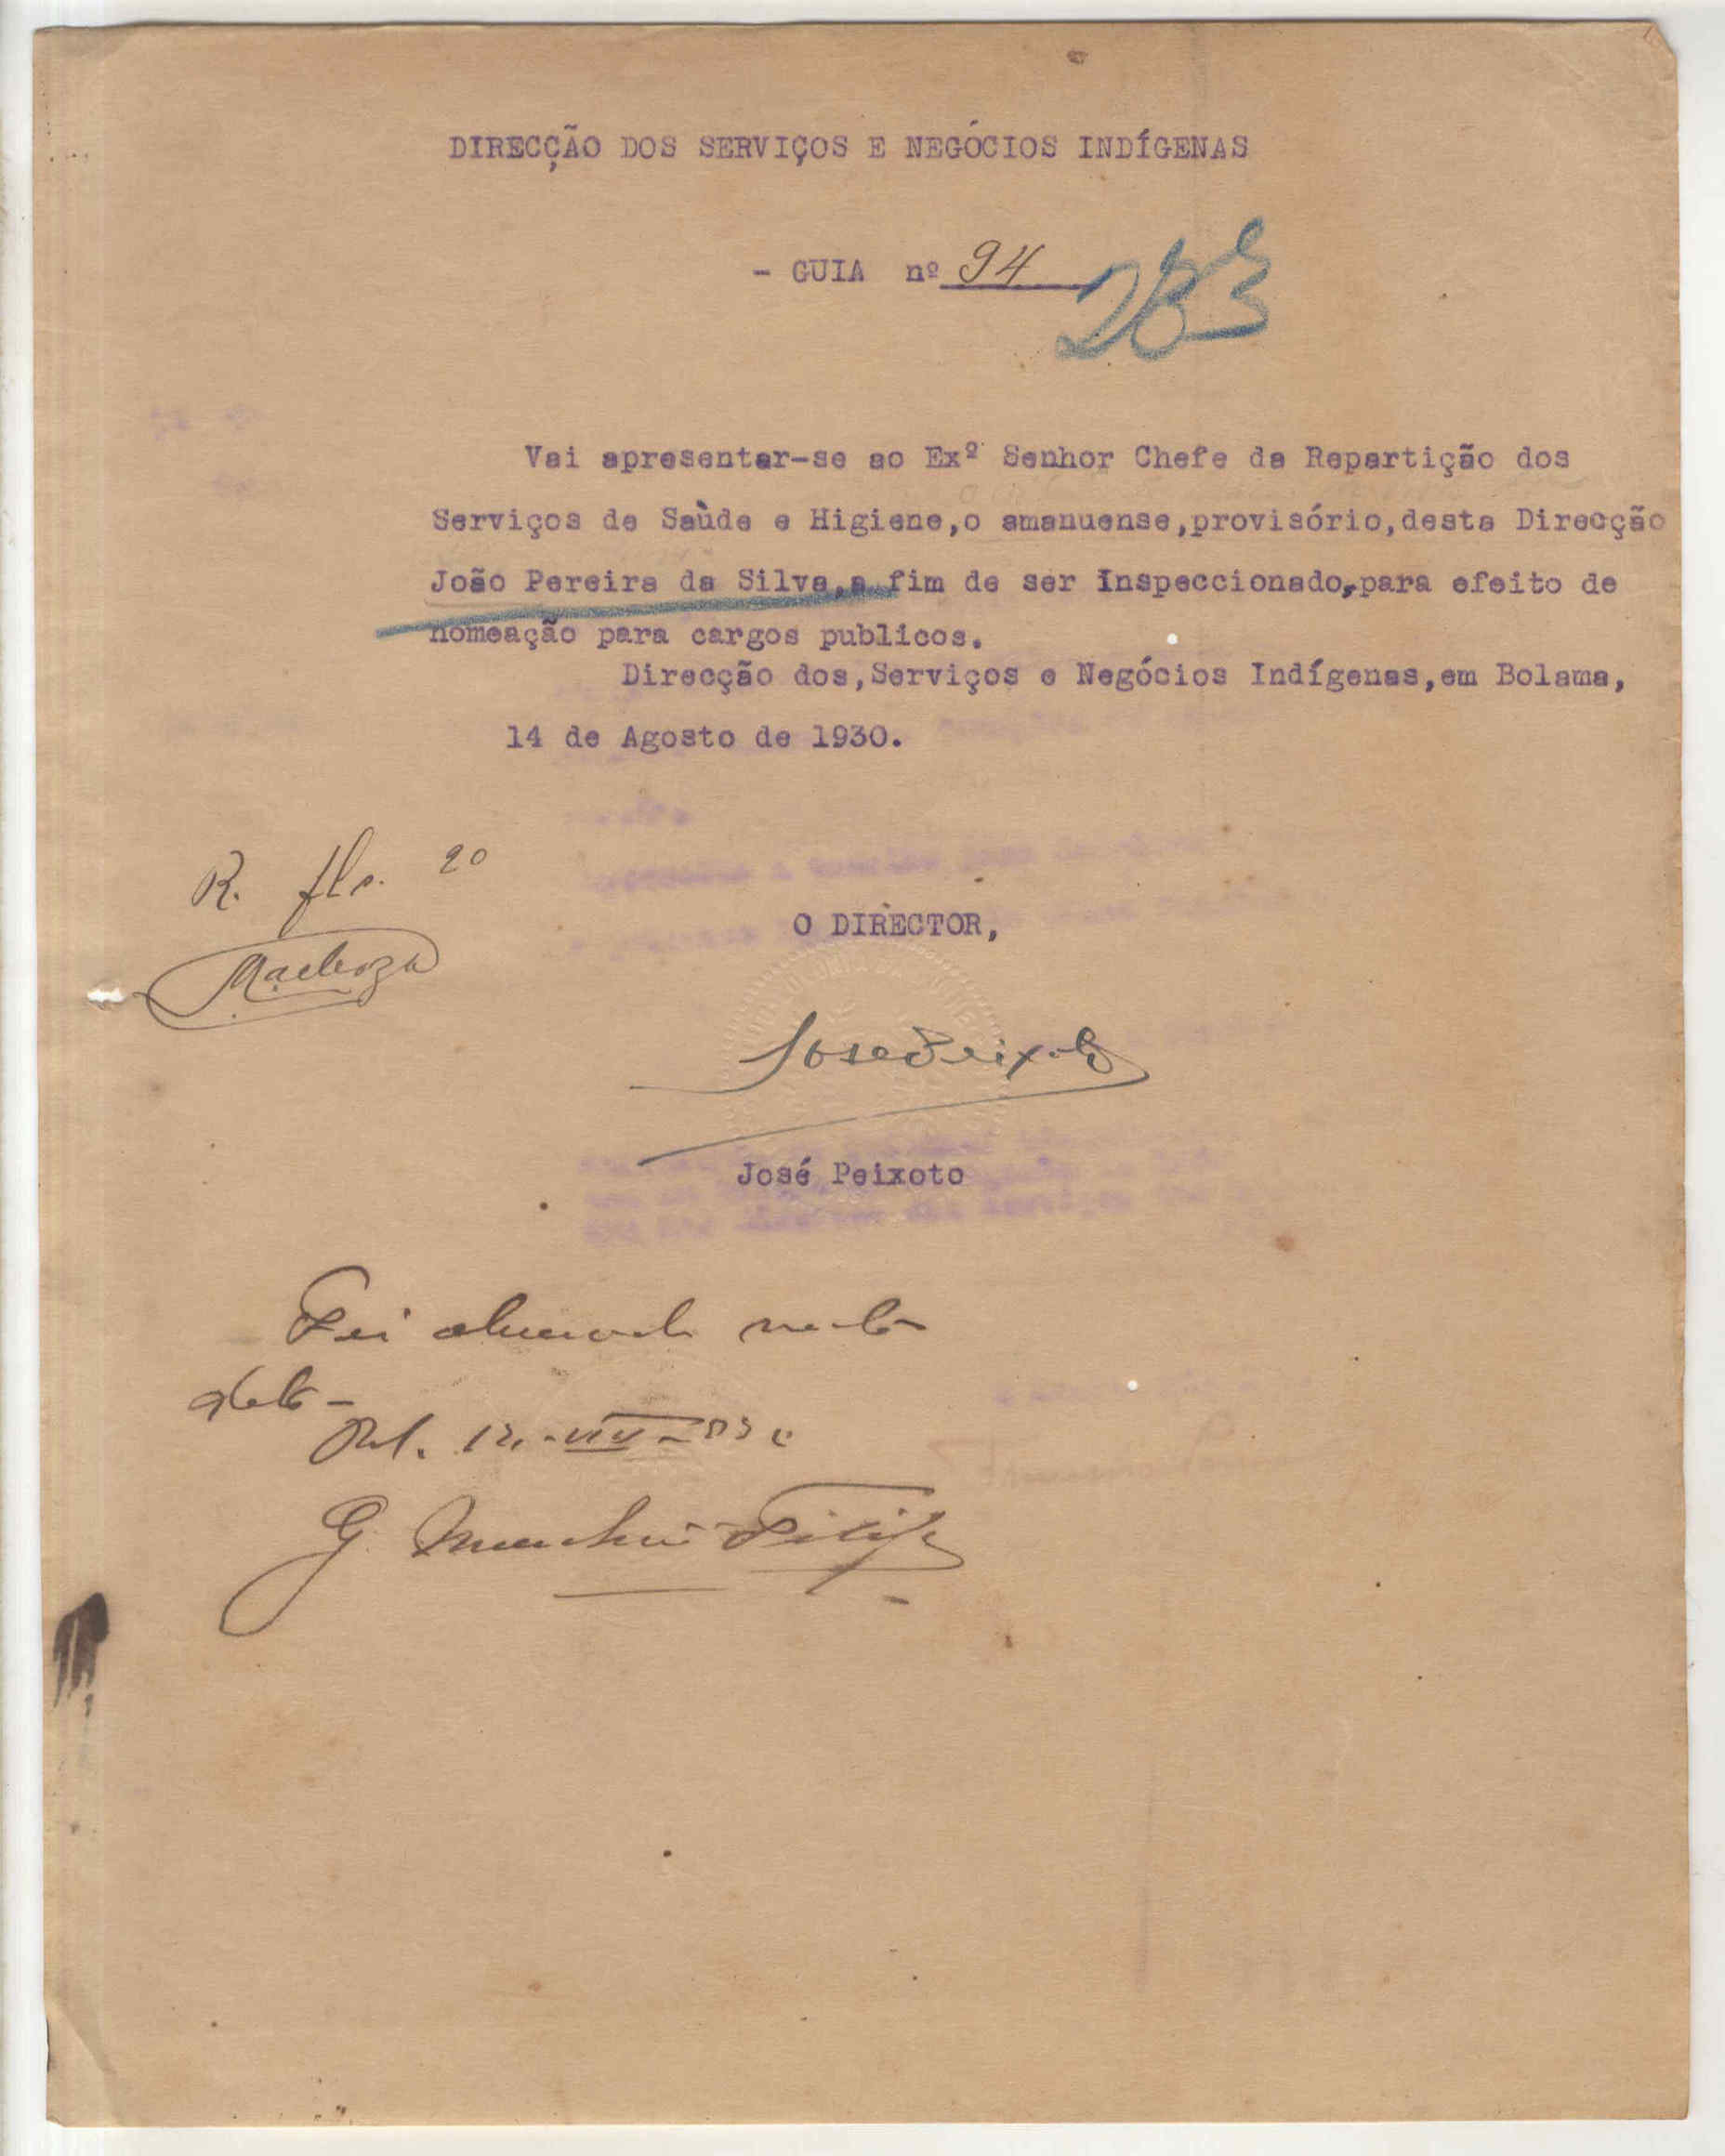 DIRECÇÃO DOS SERVIÇOS E NEGÓCIOS INDÍGENAS
- GUIA nº 94
283
Vai apresentar-se ao Exº Senhor Chefe da Repartição dos
Serviços de Saùde e Higiene,o amanuense,provisório,desta Direcção
João Pereira da Silva,a fim de ser Inspeccionado,para efeito de
nomeação para cargos publicos.
Direcção dos,Serviços e Negócios Indígenas,em Bolama,
14 de Agosto de 1930.
R. fls. 20
O DIRECTOR,
José Peixoto
José Peixoto
Foi
data -
G.